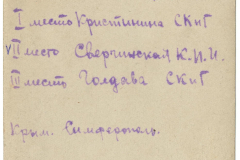 I место Кристинина СКиГ
VII место Сверчинская К.И.И.
III место Голдава СКиГ
Крым. Симферополь.